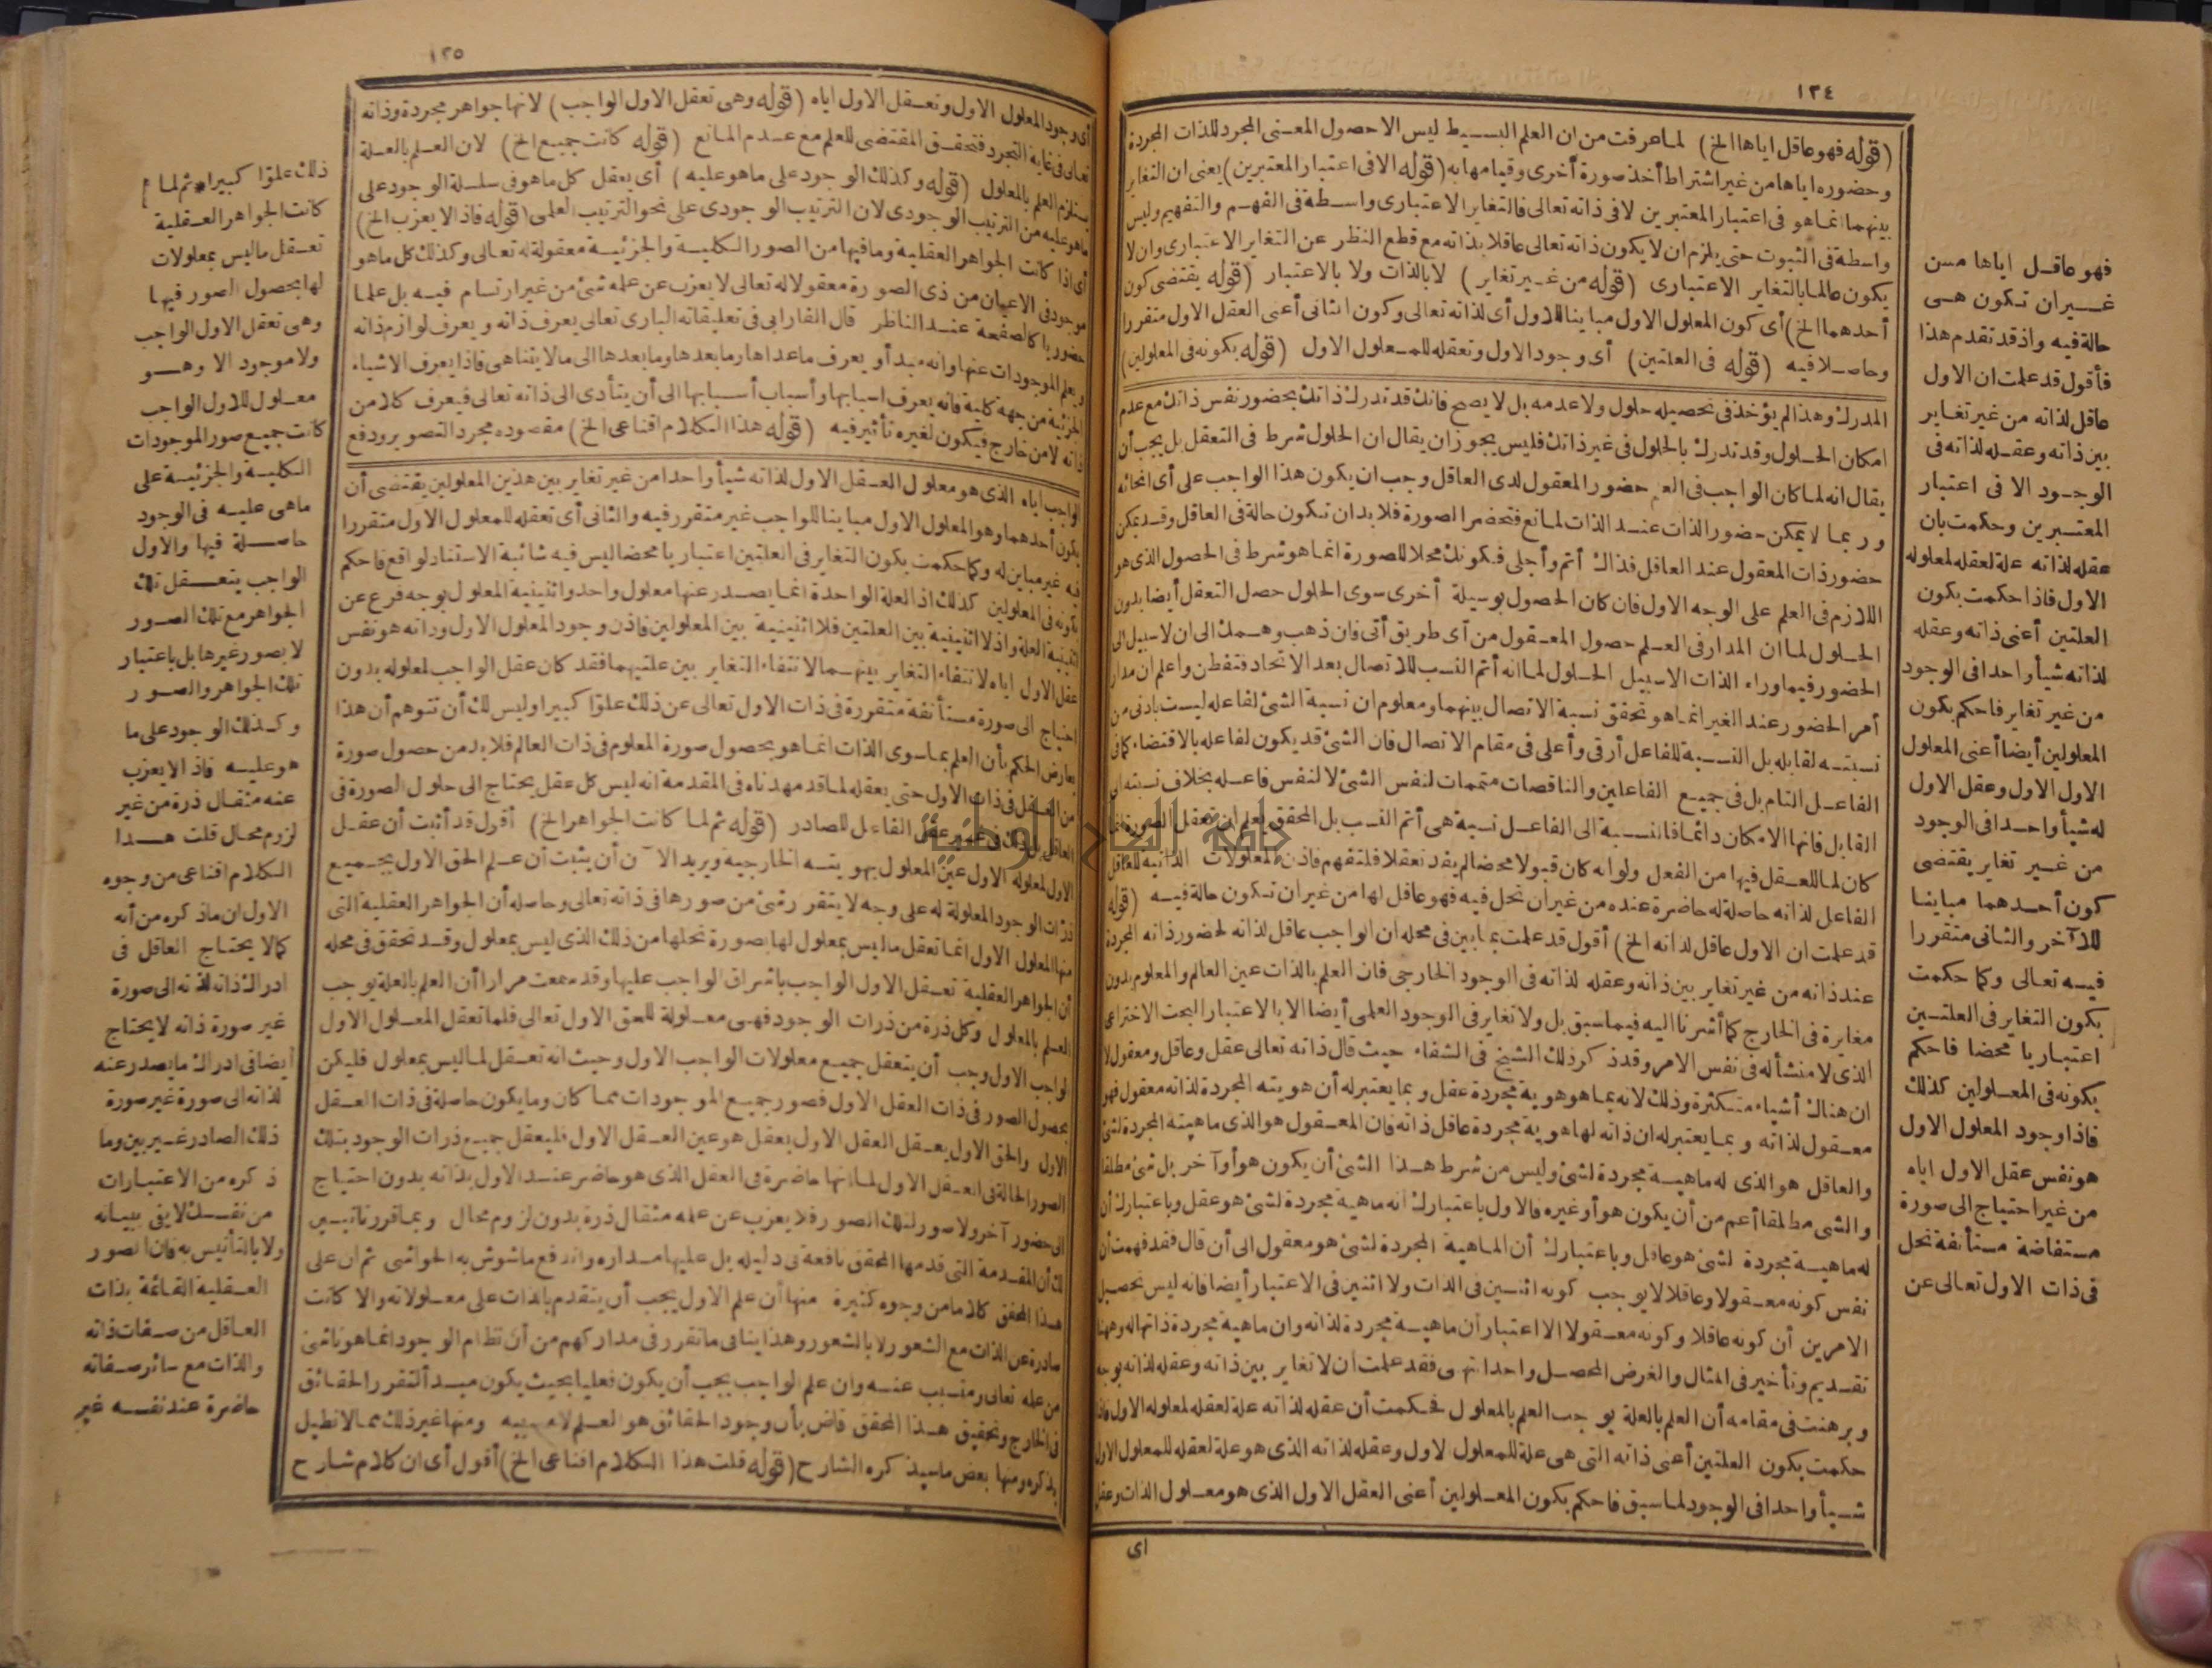 ١٢٤
(قوله فهو عاقل اياها الخ) لما عرفت من ان العلم البسيط ليس الا حصول المعنى المجرد للذات المجردة
وحضوره اياها من غير اشتراط أخذ صورة أخرى وقيامها به (قوله الا فى اعتبار المعتبرين) يعنى ان التغاير
بينهما انما هو فى اعتبار المعتبرين لا فى ذاته تعالى فالتغاير الاعتبارى واسطة فى الفهم والتفهيم وليس
واسطة فى الثبوت حتى يلزم ان لا يكون ذاته تعالى عاقلا بذاته مع قطع النظر عن التغاير الاعتبارى وان لا
يكون عالما بالتغاير الاعتبارى (قوله من غير تغاير) لا بالذات ولا بالاعتبار (قوله يقتضى كون
أحدهما الخ) أى كون المعلول الاول مباينا للاول أى لذاته تعالى وكون الثانى أعنى العقل الاول متقررا
وحاصلا فيه (قوله فى العلتين) أى وجود الاول وتعقله للمعلول الاول (قوله بكونه فى المعلولين)
المدرك وهذا لم يؤخذ فى تحصيله حلول ولا عدمه بل لا يصح فانك قد تدرك ذاتك بحضور نفس ذاتك مع عدم
امكان الحلول وقد تدرك بالحلول فى غير ذاتك فليس يجوز ان يقال ان الحلول شرط فى التعقل بل يجب أن
يقال انه لما كان الواجب فى العلم حضور المعقول لدى العاقل وجب ان يكون هذا الواجب على أى انحائه
وربما لا يمكن حضور الذات عند الذات لمانع فتحضر الصورة فلا بد ان تكون حالة فى العاقل وقد يمكن
حضور ذات المعقول عند العاقل فذاك أتم وأجلى فكونك محلا للصورة انما هو شرط فى الحصول الذى هو
اللازم فى العلم على الوجه الاول فان كان الحصول بوسيلة أخرى سوى الحلول حصل التعقل أيضا بدون
الحلول لما ان المدار فى العلم حصول المعقول من أى طريق أتى فان ذهب وهمك الى ان لا سبيل الى
الحضور فيما وراء الذات الا سبيل الحلول لما انه أتم النسب للاتصال بعد الاتحاد فتفطن واعلم أن مدار
أمر الحضور عند الغير انما هو تحقق نسبة الاتصال بينهما ومعلوم ان نسبة الشئ لفاعله ليست بادنى من
نسبته لقابله بل النسبة للفاعل أرقى وأعلى فى مقام الاتصال فان الشئ قد يكون لفاعله بالاقتضاء كما فى
الفاعل التام بل فى جميع الفاعلين والناقصات متممات لنفس الشئ لا لنفس فاعله بخلاف نسبته الى
القابل فانها الامكان دائما فالنسبة الى الفاعل نسبة هى أتم النسب بل المحقق لعلم ان تعقل الصورة انما
كان لما للعقل فيها من الفعل ولو انه كان قبولا محضا لم يفد تعقلا فلتفهم فاذن المعلولات الذاتية للعاقل
الفاعل لذاته حاصلة له حاضرة عنده من غير ان تحل فيه فهو عاقل لها من غير ان تكون حالة فيه (قوله
قد علمت ان الاول عاقل لذاته الخ) أقول قد علمت بما بين فى محله ان الواجب عاقل لذاته لحضور ذاته المجردة
عند ذاته من غير تغاير بين ذاته وعقله لذاته فى الوجود الخارجى فان العلم بالذات عين العالم والمعلوم بدون
مغايرة فى الخارج كما أشرنا اليه فيما سبق بل ولا تغاير فى الوجود العلمى أيضا الا بالاعتبار البحت الاختراعى
الذى لا منشأ له فى نفس الامر وقد ذكر ذلك الشيخ فى الشفاء حيث قال ذاته تعالى عقل وعاقل ومعقول لا
ان هناك أشياء متكثرة وذلك لانه بما هو هوية مجردة عقل وبما يعتبر له أن هويته المجردة لذاته معقول فهو
معقول لذاته وبما يعتبر له ان ذاته لها هوية مجردة عاقل ذاته فان المعقول هو الذى ماهيته المجردة لشئ
والعاقل هو الذى له ماهية مجردة لشئ وليس من شرط هذا الشئ أن يكون هو أو آخر بل شئ مطلقا
والشى مطلقا أعم من أن يكون هو أو غيره فالاول باعتبارك انه ماهية مجردة لشئ هو عقل وباعتبارك أن
له ماهية مجردة لشئ هو عاقل وباعتبارك أن الماهية المجردة لشئ هو معقول الى أن قال فقد فهمت أن
نفس كونه معقولا وعاقلا لا يوجب كونه اثنين فى الذات ولا اثنين فى الاعتبار أيضا فانه ليس تحصيل
الامرين أن كونه عاقلا وكونه معقولا الا اعتبار أن ماهية مجردة لذاته وان ماهية مجردة ذاتها له وههنا
تقديم وتأخير فى المثال والغرض المحصل واحد انتهى فقد علمت ان لا تغاير بين ذاته وعقله لذاته بوجه
وبرهنت فى مقامه أن العلم بالعلة يوجب العلم بالمعلول فحكمت أن عقله لذاته علة لعقله لمعلوله الاول فاذا
حكمت بكون العلتين أعنى ذاته التى هى علة للمعلول الاول وعقله لذاته الذى هو علة لعقله للمعلول الاول
شيأ واحدا فى الوجود لما سبق فاحكم بكون المعلولين أعنى العقل الاول الذى هو معلول الذات وعقل
اى
فهو عاقل اياها من
غير ان تكون هى
حالة فيه واذ قد تقدم هذا
فأقول قد علمت ان الاول
عاقل لذاته من غير تغاير
بين ذاته وعقله لذاته فى
الوجود الا فى اعتبار
المعتبرين وحكمت بان
عقله لذاته علة لعقله لمعلوله
الاول فاذا حكمت بكون
العلتين أعنى ذاته وعقله
لذاته شيأ واحدا فى الوجود
من غير تغاير فاحكم بكون
المعلولين أيضا أعنى المعلول
الاول الاول وعقل الاول
له شيأ واحدا فى الوجود
من غير تغاير يقتضى
كون أحدهما مباينا
للآخر والثانى متقررا
فيه تعالى وكما حكمت
بكون التغاير فى العلتين
اعتباريا محضا فاحكم
بكونه فى المعلولين كذلك
فاذا وجود المعلول الاول
هو نفس عقل الاول اياه
من غير احتياج الى صورة
مستفاضة مستأنفة تحل
فى ذات الاول تعالى عن
١٢٥
أى وجود المعلول الاول وتعقل الاول اياه (قوله وهى تعقل الاول الواجب) لانها جواهر مجردة وذاته
تعالى فى غاية التجرد فتحقق المقتضى للعلم مع عدم المانع (قوله كانت جميع الخ) لان العلم بالعلة
يستلزم العلم بالمعلول (قوله وكذلك الوجود على ماهو عليه) أى يعقل كل ماهو فى سلسلة الوجود على
ماهو عليه من الترتيب الوجودى لان الترتيب الوجودى على نحو الترتيب العلمى (قوله فاذا لا يعزب الخ)
أى اذا كانت الجواهر العقلية وما فيها من الصور الكلية والجزئية معقولة له تعالى وكذلك كل ماهو
موجود فى الاعيان من ذى الصورة معقولا له تعالى لا يعزب عن علمه شئ من غير ارتسام فيه بل علما
حضوريا كالصفحة عند الناظر قال الفارابى فى تعليقاته البارى تعالى يعرف ذاته ويعرف لوازم ذاته
ويعلم الموجودات عنها وانه مبدأ ويعرف ما عداها وما بعدها وما بعدها الى مالا يتناهى فاذا يعرف الاشياء
الجزئية من جهة كلية فانه يعرف اسبابها وأسباب أسبابها الى أن يتأدى الى ذاته تعالى فيعرف كلا من
ذاته لا من خارج فيكون لغيره تأثير فيه (قوله هذا الكلام اقناعى الخ) مقصوده مجرد التصوير ودفع
الواجب اياه الذى هو معلول العقل الاول لذاته شيأ واحدا من غير تغاير بين هذين المعلولين يقتضى أن
يكون أحدهما وهو المعلول الاول مباينا للواجب غير متقرر فيه والثانى أى تعقله للمعلول الاول متقررا
فيه غير مباين له وكما حكمت بكون التغاير فى العلتين اعتباريا محضا ليس فيه شائبة الاستناد لواقع فاحكم
بكونه فى المعلولين كذلك اذ العلة الواحدة انما يصدر عنها معلول واحد واثنينية المعلول بوجه فرع عن
اثنينية العلة واذ لا اثنينية بين العلتين فلا اثنينية بين المعلولين فاذن وجود المعلول الاول وذاته هو نفس
عقل الاول اياه لانتفاء التغاير بينهما لانتفاء التغاير بين علتيهما فقد كان عقل الواجب لمعلوله بدون
احتياج الى صورة مستأنفة متقررة فى ذات الاول تعالى عن ذلك علوا كبيرا وليس لك أن تتوهم أن هذا
يعارض الحكم بأن العلم بما سوى الذات انما هو بحصول صورة المعلوم فى ذات العالم فلا بد من حصول صورة
من العقل فى ذات الاول حتى يعقله لما قد مهدناه فى المقدمة انه ليس كل عقل يحتاج الى حلول الصورة فى
العاقل بل ذلك فى غير عقل الفاعل للصادر (قوله ثم لما كانت الجواهر الخ) أقول قد أثبت أن عقل
الاول لمعلوله الاول عين المعلول بهويته الخارجية ويريد الآن أن يثبت أن علم الحق الاول بجميع
ذرات الوجود المعلولة له على وجه لا يتقرر شئ من صورها فى ذاته تعالى وحاصله أن الجواهر العقلية التى
منها المعلول الاول انما تعقل ما ليس بمعلول لها بصورة تحلها من ذلك الذى ليس بمعلول وقد تحقق فى محله
أن الجواهر العقلية تعقل الاول الواجب باشراق الواجب عليها وقد سمعت مرارا أن العلم بالعلة يوجب
العلم بالمعلول وكل ذرة من ذرات الوجود فهى معلولة للحق الاول تعالى فلما تعقل المعلول الاول
الواجب الاول وجب أن يتعقل جميع معلولات الواجب الاول وحيث انه تعقل لما ليس بمعلول فليكن
بحصول الصور فى ذات العقل الاول فصور جميع الموجودات مما كان وما يكون حاصلة فى ذات العقل
الاول والحق الاول يعقل العقل الاول بعقل هو عين العقل الاول فليعقل جميع ذرات الوجود بتلك
الصور الحالة فى العقل الاول لما انها حاضرة فى العقل الذى هو حاضر عند الاول بذاته بدون احتياج
الى حضور آخر ولا صور لتلك الصور فلا يعزب عن علمه مثقال ذرة بدون لزوم محال وبما قررنا تبين
لك أن المقدمة التى قدمها المحقق نافعة فى دليله بل عليها مداره واندفع ما شوش به الحواشى ثم ان على
هذا المحقق كلاما من وجوه كثيرة منها أن علم الاول يجب أن يتقدم بالذات على معلولاته والا كانت
صادرة عن الذات مع الشعور لا بالشعور وهذا ينافى ما تقرر فى مداركهم من أن نظام الوجود انما هو ناشئ
من علمه تعالى ومتسبب عنه وان علم الواجب يجب أن يكون فعليا بحيث يكون مبدأ لتقرر الحقائق
فى الخارج وتحقيق هذا المحقق قاض بأن وجود الحقائق هو العلم لا مسببه ومنها غير ذلك مما لا نطيل
بذكره ومنها بعض ما سيذكره الشارح (قوله قلت هذا الكلام اقناعى الخ) أقول أى ان كلام شارح
ذلك علوا كبيرا * ثم لما
كانت الجواهر العقلية
تعقل ما ليس بمعلولات
لها بحصول الصور فيها
وهى تعقل الاول الواجب
ولا موجود الا وهو
معلول للاول الواجب
كانت جميع صور الموجودات
الكلية والجزئية على
ماهى عليه فى الوجود
حاصلة فيها والاول
الواجب يتعقل تلك
الجواهر مع تلك الصور
لا بصور غيرها بل باعتبار
تلك الجواهر والصور
وكذلك الوجود على ما
هو عليه فاذا لا يعزب
عنه مثقال ذرة من غير
لزوم محال قلت هذا
الكلام اقناعى من وجوه
الاول ان ما ذكره من أنه
كما لا يحتاج العاقل فى
ادراك ذاته لذاته الى صورة
غير صورة ذاته لا يحتاج
أيضا فى ادراك ما يصدر عنه
لذاته الى صورة غير صورة
ذلك الصادر غير بين وما
ذكره من الاعتبارات
من نفسك لا يفى ببيانه
ولا بالتأنيس به فان الصور
العقلية القائمة بذات
العاقل من صفات ذاته
والذات مع سائر صفاته
حاضرة عند نفسه غير
جامعة النجاح الوطنية